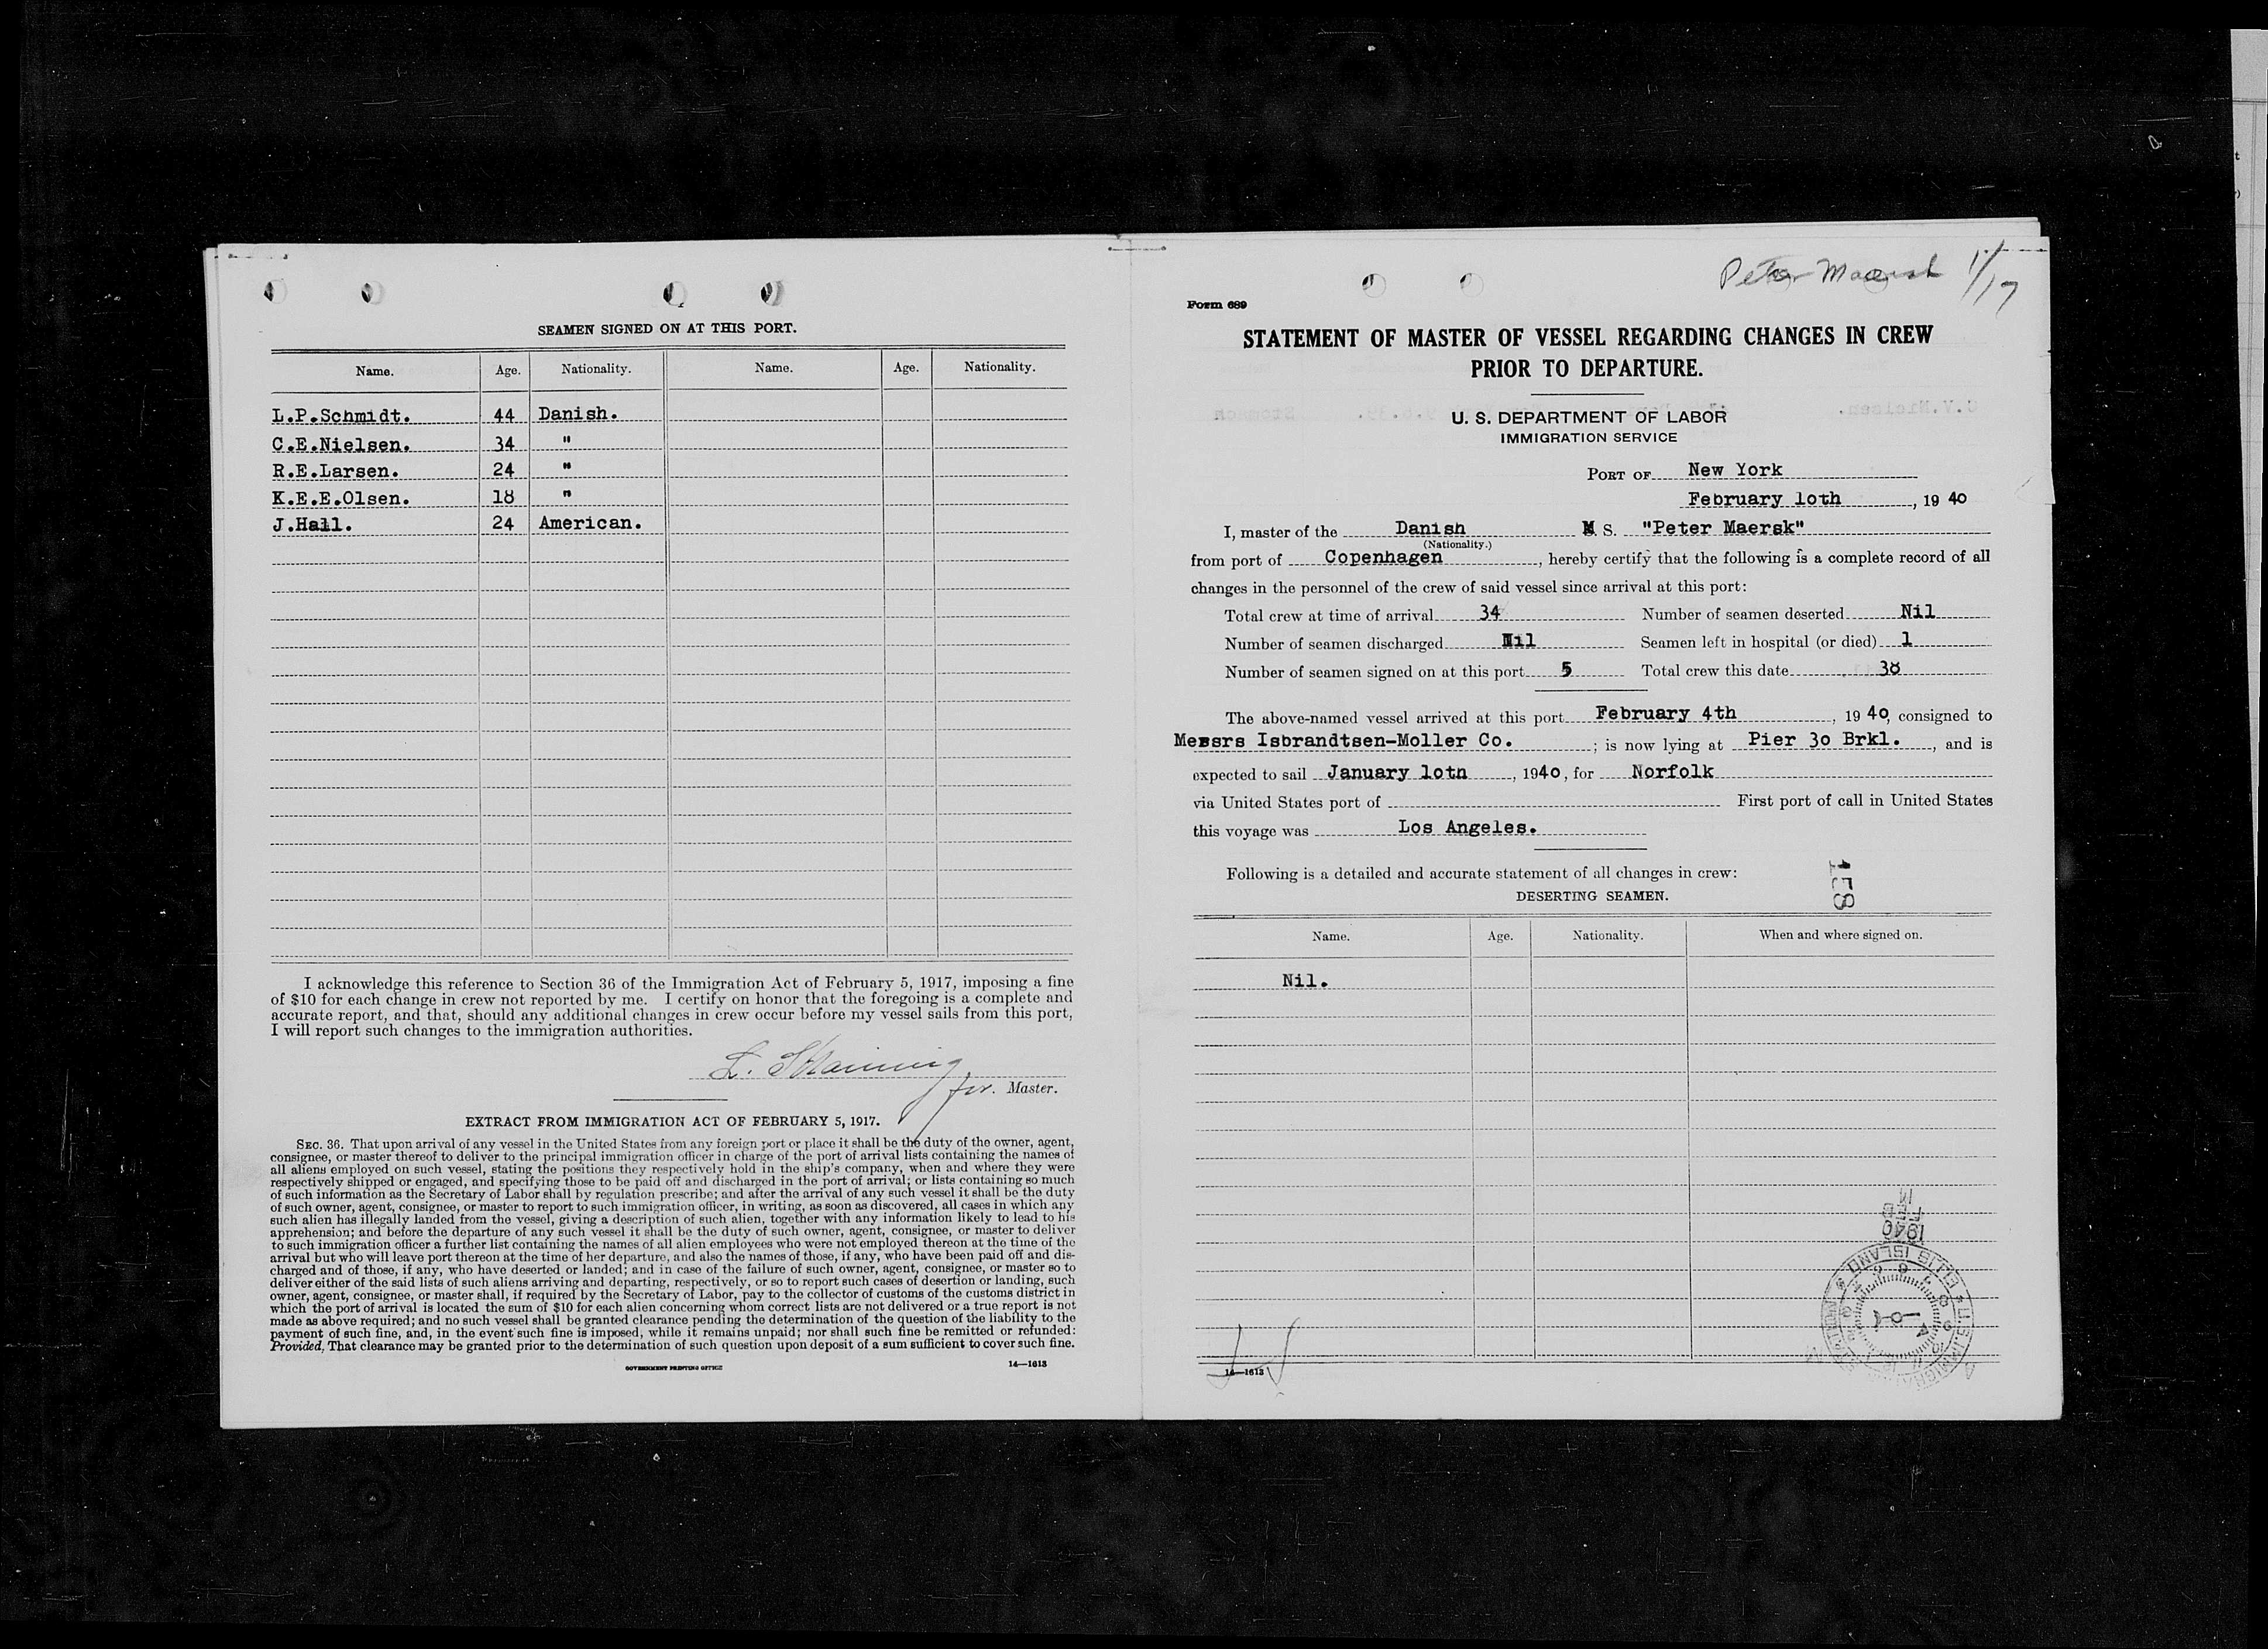 SEAMEN SIGNED ON AT THIS PORT.
Name. Age. Nationality. Name. Age. Nationality.
L.P.Schmidt. 44 Danish.
C.E.Nielsen. 34 "
R.E.Larsen. 24 "
K.E.E.Olsen. 18 "
J.Hall. 24 American.
I acknowledge this reference to Section 36 of the Immigration Act of February 5, 1917, imposing a fine
of $10 for each change in crew not reported by me. I certify on honor that the foregoing is a complete and
accurate report, and that, should any additional changes in crew occur before my vessel sails from this port,
I will report such changes to the immigration authorities.
L.
for. Master.
EXTRACT FROM IMMIGRATION ACT OF FEBRUARY 5, 1917.
SEC. 36. That upon arrival of any vessel in the United States from any foreign port or place it shall be the duty of the owner, agent,
consignee, or master thereof to deliver to the principal immigration officer in charge of the port of arrival lists containing the names of
all aliens employed on such vessel, stating the positions they respectively hold in the ship's company, when and where they were
respectively shipped or engaged, and specifying those to be paid off and discharged in the port of arrival; or lists containing so much
of such information as the Secretary of Labor shall by regulation prescribe; and after the arrival of any such vessel it shall be the duty
of such owner, agent, consignee, or master to report to such immigration officer, in writing, as soon as discovered, all cases in which any
such alien has illegally landed from the vessel, giving a description of such alien, together with any information likely to lead to his
apprehension; and before the departure of any such vessel it shall be the duty of such owner, agent, consignee, or master to deliver
to such immigration officer a further list containing the names of all alien employees who were not employed thereon at the time of the
arrival but who will leave port thereon at the time of her departure, and also the names of those, if any, who have been paid off and dis-
charged and of those, if any, who have deserted or landed; and in case of the failure of such owner, agent, consignee, or master so to
deliver either of the said lists of such aliens arriving and departing, respectively, or so to report such cases of desertion or landing, such
owner, agent, consignee, or master shall, if required by the Secretary of Labor, pay to the collector of customs of the customs district in
which the port of arrival is located the sum of $10 for each alien concerning whom correct lists are not delivered or a true report is not
made as above required; and no such vessel shall be granted clearance pending the determination of the question of the liability to the
payment of such fine, and, in the event such fine is imposed, while it remains unpaid; nor shall such fine be remitted or refunded:
Provided, That clearance may be granted prior to the determination of such question upon deposit of a sum sufficient to cover such fine.
GOVERNMENT PRINTING OFFICE 14—1613
Peter Maersk 1/17
Form 689
STATEMENT OF MASTER OF VESSEL REGARDING CHANGES IN CREW
PRIOR TO DEPARTURE.
U. S. DEPARTMENT OF LABOR
IMMIGRATION SERVICE
PORT OF New York
February 1oth, 19 4o
I, master of the Danish M S. "Peter Maersk"
(Nationality.)
from port of Copenhagen, hereby certify that the following is a complete record of all
changes in the personnel of the crew of said vessel since arrival at this port:
Total crew at time of arrival 34 Number of seamen deserted Nil
Number of seamen discharged Nil Seamen left in hospital (or died) 1
Number of seamen signed on at this port 5 Total crew this date 38
The above-named vessel arrived at this port February 4th, 19 4o, consigned to
Messrs Isbrandtsen-Moller Co. ; is now lying at Pier 3o Brkl., and is
expected to sail January 1oth, 194o, for Norfolk
via United States port of First port of call in United States
this voyage was Los Angeles.
Following is a detailed and accurate statement of all changes in crew:
158
DESERTING SEAMEN.
Name. Age. Nationality. When and where signed on.
Nil.
1940
FEB
14—1613